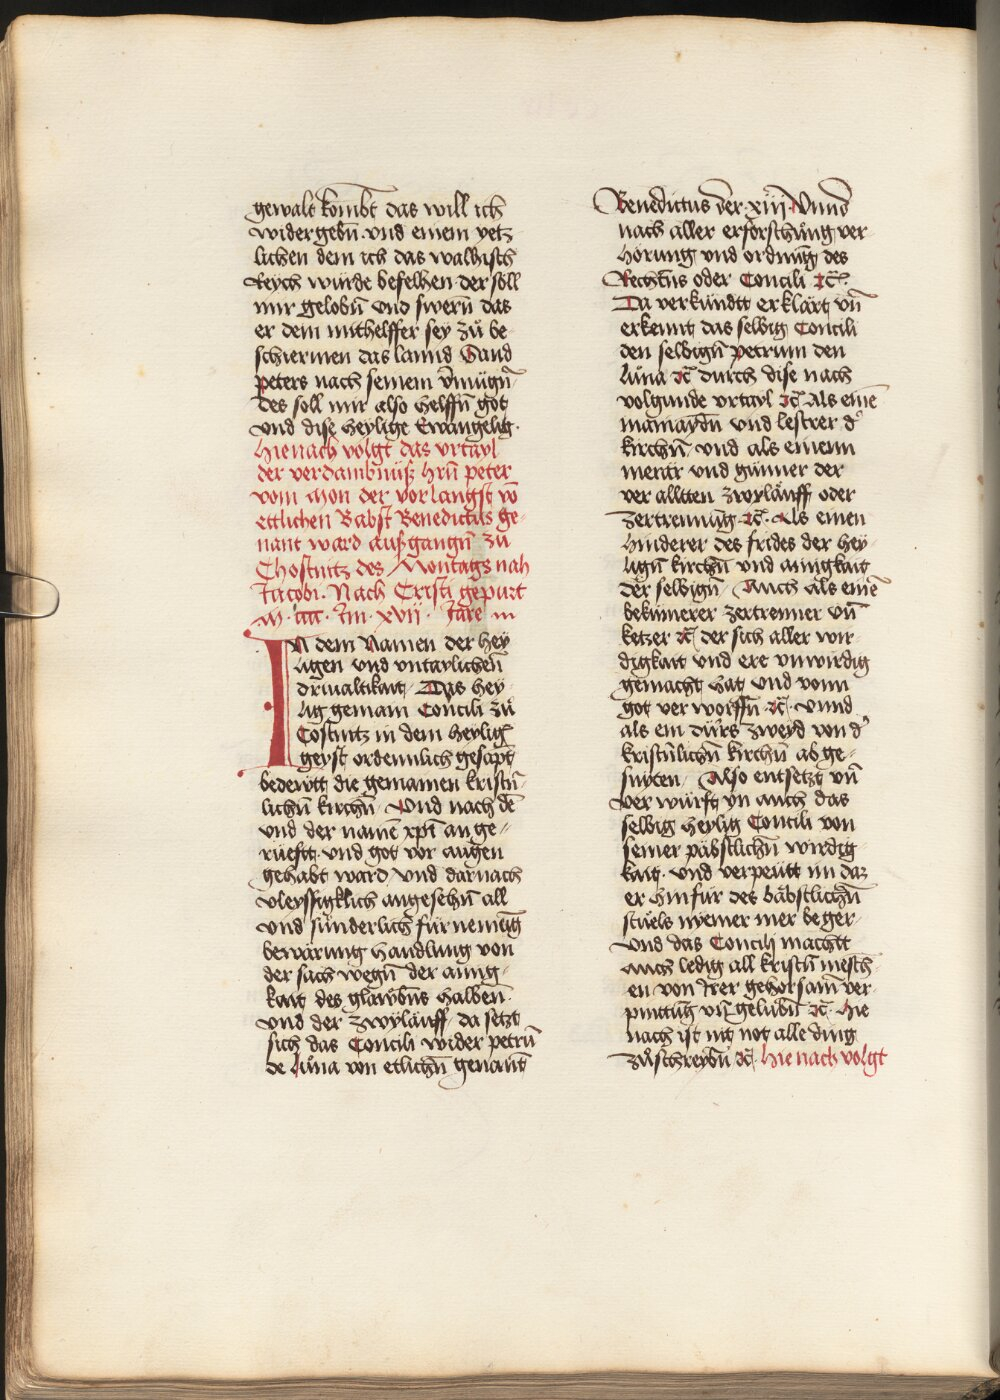 gewalt kombt das will ich
widergebn̄ · vnd einem yetz
lichen dem ich das walhisch
Reych wurde befelhen der soll
mir gelobn̄ vnd swern̄ das
er dem mithelffer sey zů be
schiermen das lannd Sand
peters nach seinem v̄mügn̄
Des soll mir also helffn̄ got
vnd dise heylige Ewangelig ·
Hienach volgt das vrtayl
der verdambnüß hrn̄ peter
vom Mon der vor langst vō
ettlichen Babst Benedictus ge-
nant ward außgangn̄ zu
Chostnitz des Montags nah
Jacobi · Nach Cristi gepurt
M · cccc · Jm · xvii · Jare
IN dem Namen der hey
ligen vnd vntaylichen̄
drivaltikait · Das hey
lig gemain Concili zů
Costnitz in dem heyliḡ
geyst ordennlich gesāpt
bedewtt die gemainen kristn̄
lichn̄ kirchn̄ · Vnd nach dē
vnd der namē xp̄i an ge-
rüefft · vnd got vor augen
gehabt ward vnd darnach
vleyssigklich angesehn̄ all
vnd sůnderlich fürnemūg
bewärung handlung von
der sach wegn̄ der ainig-
kait des glawbn̄s halben̄ ·
vnd der zwyläuff · da setzt
sich das Concili wider petrū
de Lůna von etlichn̄ genant
Benedictus der · xiij · Vnnd
nach aller erforschung ver-
hörung vnd ordnūg des
Rechtn̄s oder Concili ⁊c̄ ·
Da verkündtt erklärt vn̄
erkennt das selbig Concili
den selbign̄ petrum den
Lůna ⁊c̄ durch dise nach
volgunde vrtayl ⁊c̄ Als einē
mainaydn̄ vnd lestrer d'
kirchn̄ · vnd als einenn
merär vnd günner der
ver alltten zwyläuff oder
zertrennūg · ⁊c̄ · Als einen
hinderer des frides der hey-
lign̄ kirchn̄ vnd ainigkait
der selbign̄ · Auch als einē
bekümerer zertrenner vn̄
ketzer ⁊c̄ der sich aller wir-
digkait vnd ere vnwirdig
gemacht hat vnd vonn
got verworffn̄ ⁊c̄ · vnnd
als ein dürs zweyd von d'
kristn̄lichn̄ kirchn̄ abge-
snyten · Also entsetzt vn̄
verwürft yn auch das
selbig heylig Concili von
seiner päbstlichn̄ wirdig
kait · vnd verpeütt im daz
er hinfür des bäbstlichn̄
stůels nyemer mer beger ·
Vnd das Concilj machtt
auch ledig all kristn̄ mēsch-
en von Irer gehorsam ver-
pintn̄g vn̄ gelübn̄ ⁊c̄ · Hie
nach ist nit not alle ding
zůschreybn̄ ⁊c̄ · Hie nach volgt